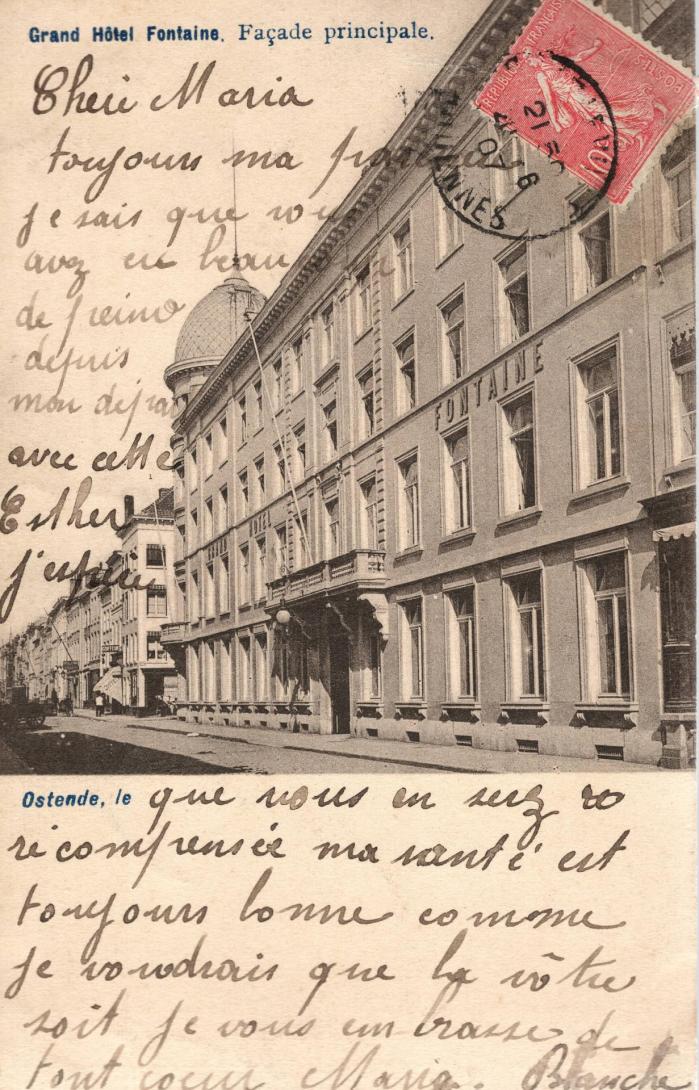 Grand Hôtel Fontaine. Façade principale.
RÉPUBLIQUE FRANÇAISE
POSTES
10
VALENCIENNES
21
07
Cheri Maria
toujours ma
je sais que vous
avez eu beau
de peine
depuis
mon départ
avec cette
Esther
j'espère
FONTAINE
GRAND HOTEL
Ostende, le que vous en serez
récompensée ma santé est
toujours bonne comme
je voudrais que la vôtre
soit je vous embrasse de
tout coeur Maria. Blanche